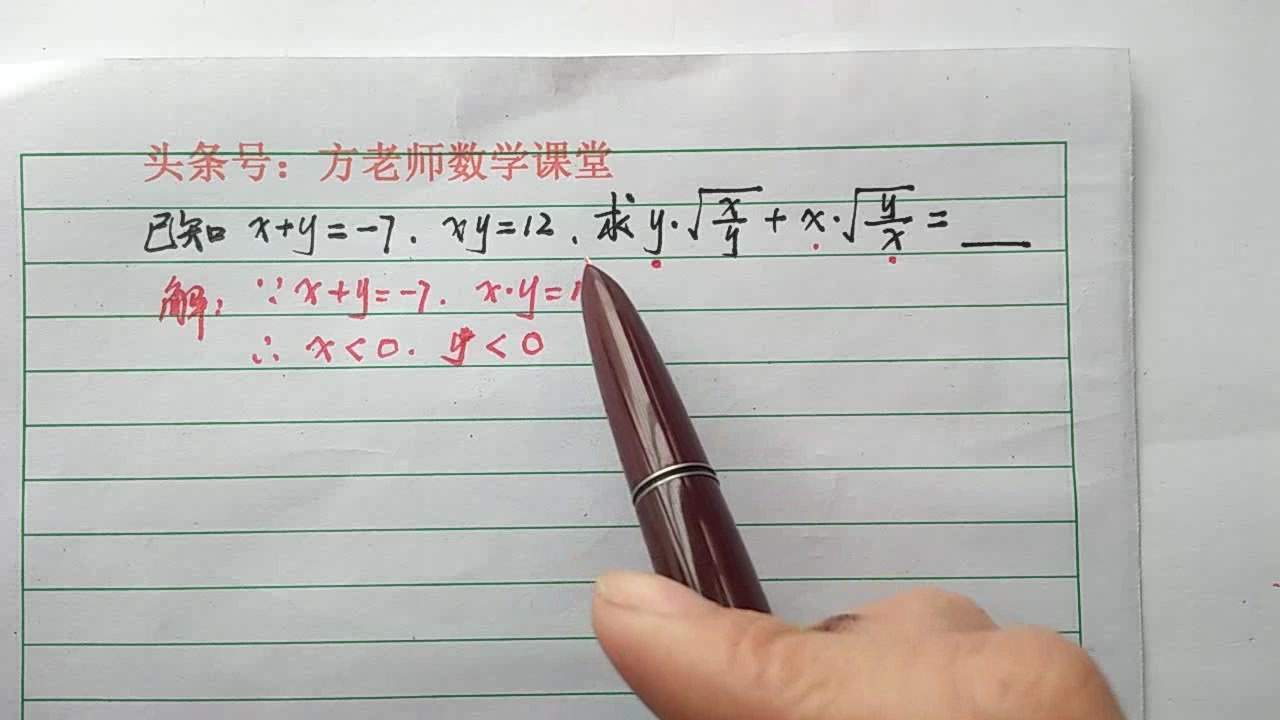 头条号：方老师数学课堂
已知 x+y=-7. xy=12. 求 y·√(x/y) + x·√(y/x) = ___
解: ∵ x+y=-7. x·y=1
∴ x<0. y<0